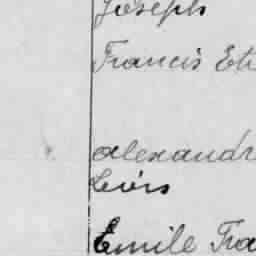 Joseph
Francis Et
Alexandr
Léris
Emile Fra